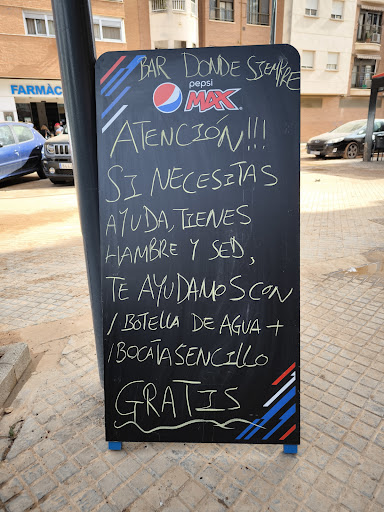 FARMÀC
BAR DONDE SIEMPRE
pepsi
MAX
ATENCIÓN!!!
SI NECESITAS
AYUDA, TIENES
HAMBRE Y SED,
TE AYUDAMOS CON
1 BOTELLA DE AGUA +
1 BOCATA SENCILLO
GRATIS